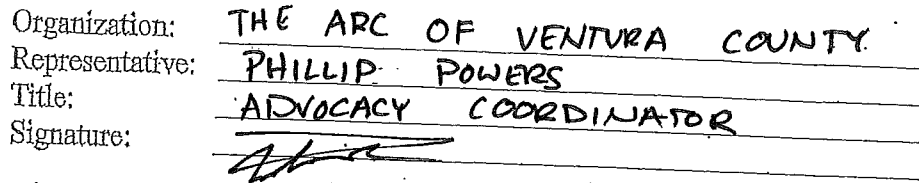 Organization: THE ARC OF VENTURA COUNTY
Representative: PHILLIP POWERS
Title: ADVOCACY COORDINATOR
Signature: